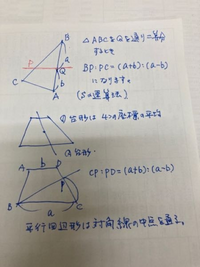 B
△ABCをQを通り二等分
するとき
P
a
Q
BP:PC=(a+b):(a-b)
C
b
になります。
A
(Sの運算法)
台形は4つの
の平均
台形
A b D
CP:PD=(a+b):(a-b)
P
B a C
平行四辺形は対角線の中点を通る。